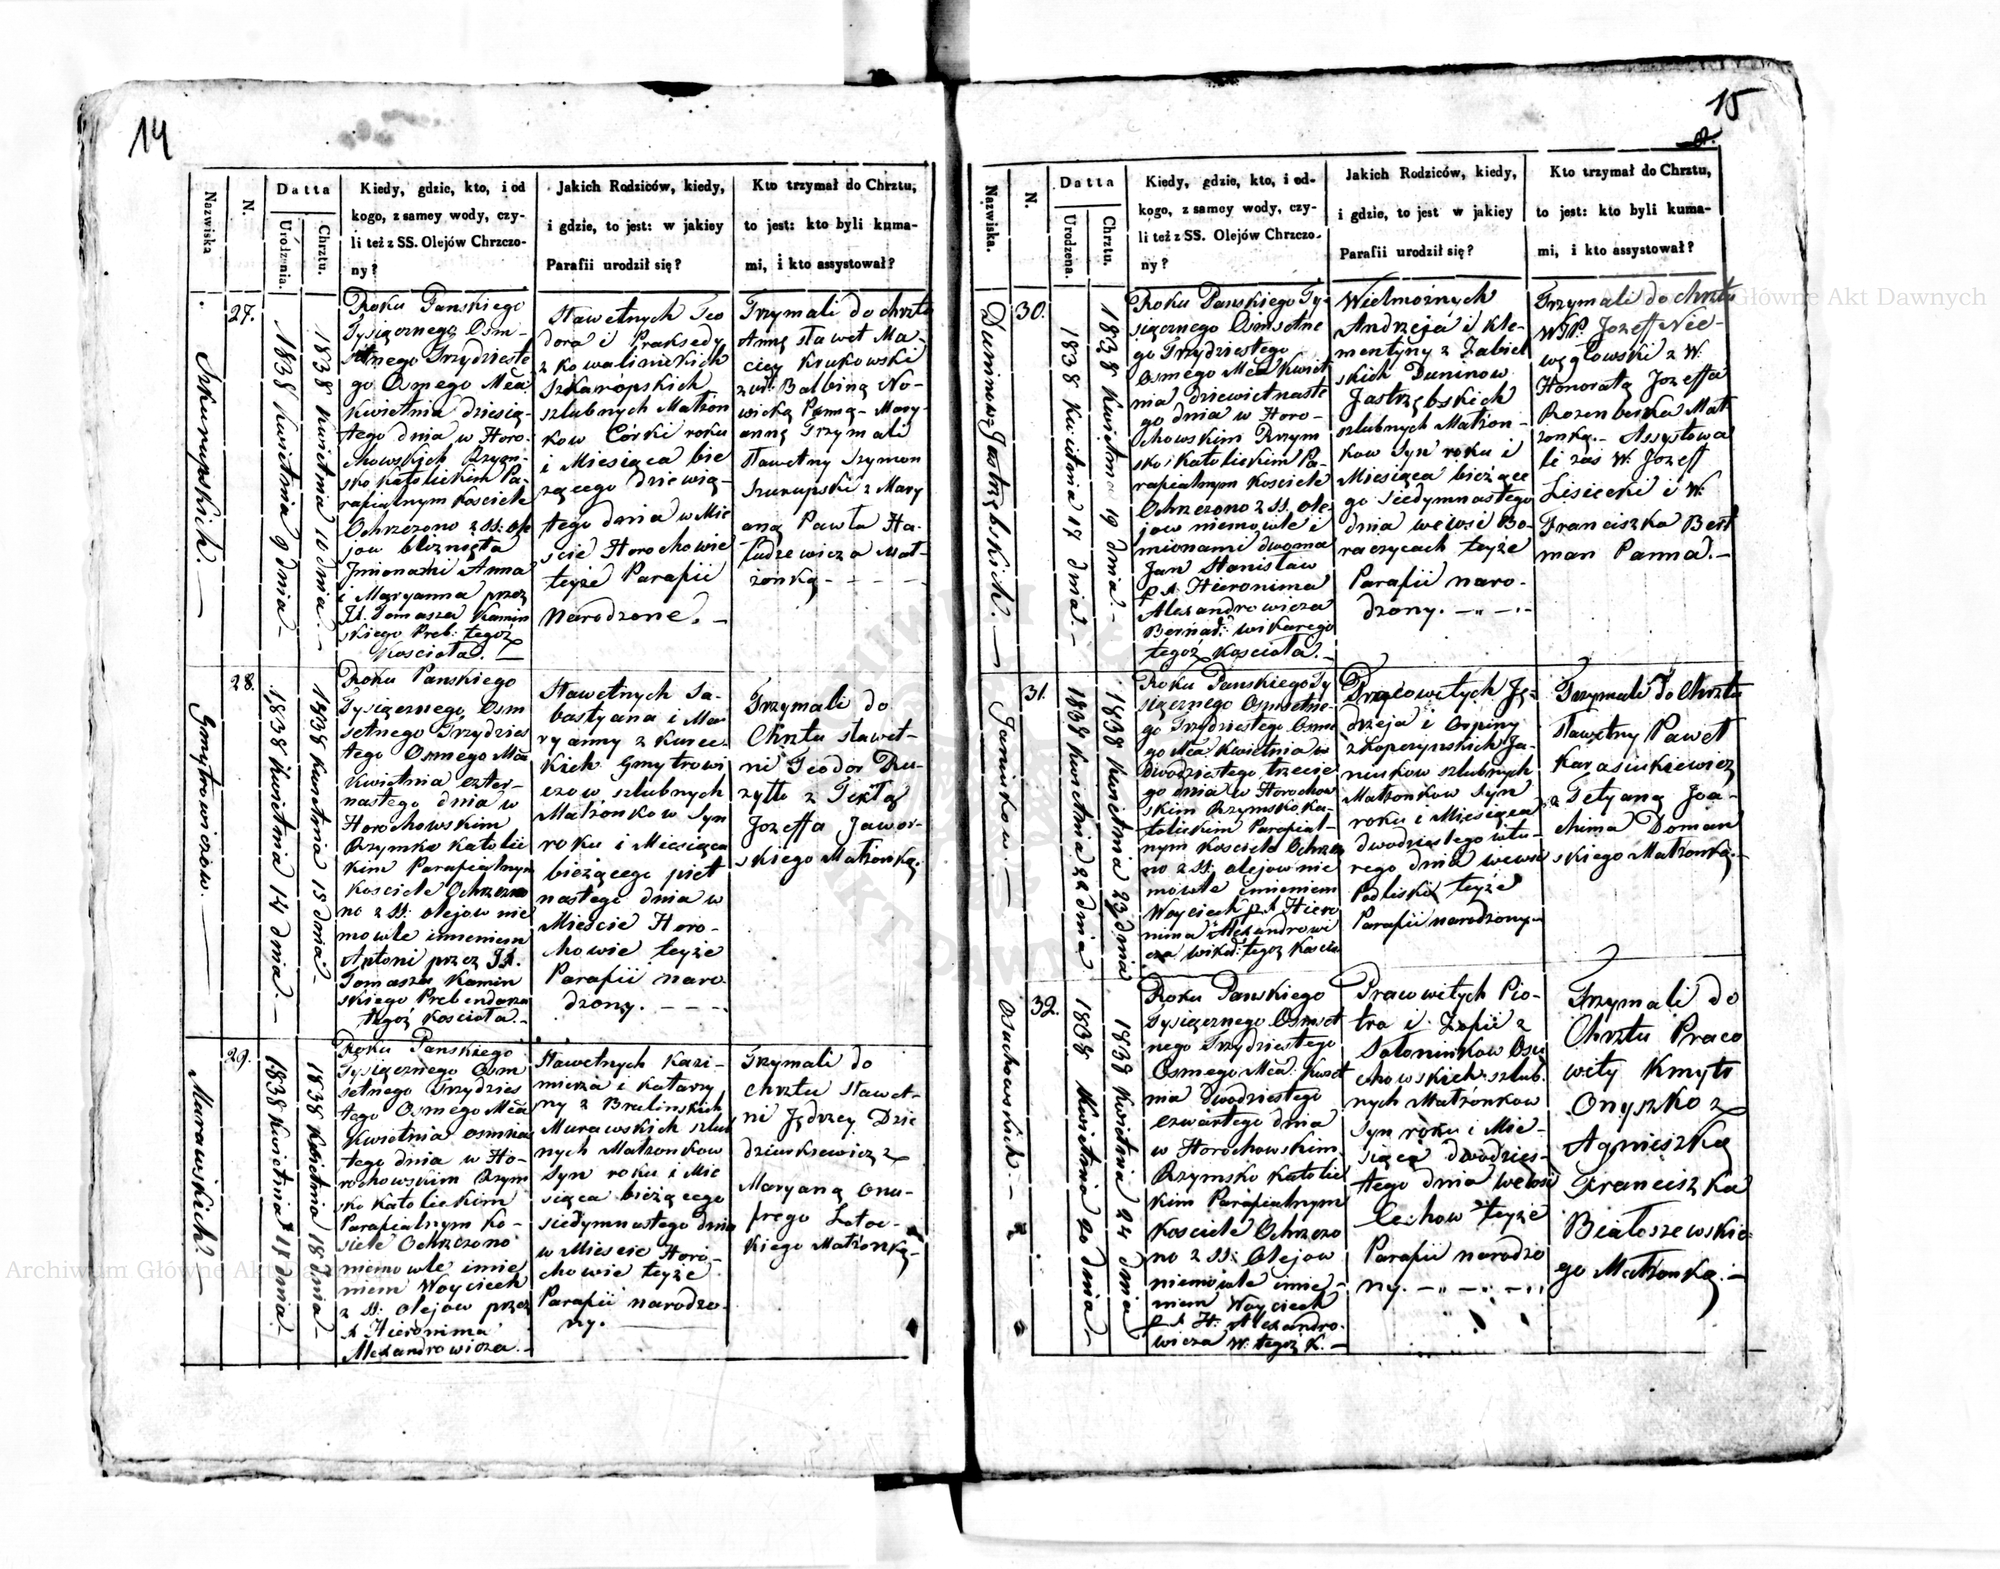 14
Nazwiska
N.
Datta
Urodzenia.
Chrztu.
Kiedy, gdzie, kto, i od
kogo, z samey wody, czy-
li też z SS. Olejów Chrzczo-
ny?
Jakich Rodziców, kiedy,
i gdzie, to jest: w jakiey
Parafii urodził się?
Kto trzymał do Chrztu,
to jest: kto byli kuma-
mi, i kto assystował?
Szkurupskich. —
27.
1838 Kwietnia 9 dnia —
1838 Kwietnia 10 dnia. —
Roku Panskiego
Tysiącznego Osm-
setnego Trzydieste
go Osmego Mca
Kwietnia dziesią-
tego dnia w Horo-
chowskich Rzym-
sko Katolickim Pa-
rafialnym Kosciele
Ochrzczono z SS: Ole
jow bliznięta
Jmionami Anna
i Maryanna przez
Tomasza Kamin
skiego Preb: tegoż
Kosciola. —
Sławetnych Teo
dora i Praksedy
z Kowalinskich
Szkaropskich
szlubnych Małżon
kow Córki roku
i Miesiąca bie
żącego dziewią-
tego dnia w Mie
ście Horochowie
teyże Parafii
Narodzone. —
Trzymali do chrztu
Annę sławet Ma-
ciey Krukowski
z Balbiną No-
wicką Panną — Mary-
annę Trzymali
sławetny Szymon
Szurupski z Mary
anną Pawła Ha-
ludzewicza Mał-
żonką — — — —
Gmytrowiczow. —
28.
1838 Kwietnia 14 dnia. —
1838 Kwietnia 15 dnia —
Roku Panskiego
Tysiącznego Osm
setnego Trzydzies
tego Osmego Mca
Kwietnia czter-
nastego dnia w
Horochowskim
Rzymsko Katolic
kim Parafialnym
Kosciele Ochrzczo
no z SS: olejow nie
mowle imieniem
Antoni przez
Tomasza Kamin
skiego Prebendarza
tegoż Kosciola. —
Sławetnych Sa-
bastyana i Ma-
ryanny z Kurec-
kich Gmytrowi
czow szlubnych
Małżonkow Syn
roku i Miesiąca
bieżącego piet
nastego dnia w
Mieście Horo-
chowie teyże
Parafii naro
dzony. — — — —
Trzymali do
Chrztu sławet-
ni Teodor Ru-
zyllo z Teklą
Jozeffa Jawor-
skiego Małżonką.
Murawskich. —
29.
1838 Kwietnia 17 dnia. —
1838 Kwietnia 18 dnia —
Roku Panskiego
Tysiącznego Osm
setnego Trzydzies
tego Osmego Mca
Kwietnia osmnas
tego dnia w Ho-
rochowskim Rzym
sko Katolickim
Parafialnym Ko-
sciele Ochrzczono
niemowle imie
niem Woyciech
z SS: olejow przez
Hieronima
Alexandrowicza. —
Sławetnych Kazi-
mierza i Katarzy
ny z Bralinskich
Murawskich szlub
nych Małzonkow
Syn roku i Mie
siąca bieżącego
siedymnastego dnia
w Miescie Horo-
chowie teyże
Parafii narodzo-
ny.
Trzymali do
chrztu Sławet-
ni Jędrzey Dzie
dziunkiewicz z
Maryaną Onu-
frego Zatoc-
kiego Małżonką —
15
Nazwiska.
N.
Datta
Urodzena.
Chrztu.
Kiedy, gdzie, kto, i od-
kogo, z samey wody, czy-
li też z SS. Olejów Chrzczo-
ny?
Jakich Rodziców, kiedy,
i gdzie, to jest w jakiey
Parafii urodził się?
Kto trzymał do Chrztu,
to jest: kto byli kuma-
mi, i kto assystował?
Duninow Jastrzębskich. —
30.
1838 Kwietnia 17 dnia. —
1838 Kwietnia 19 dnia. —
Roku Panskiego Ty-
siącznego Osmsetne
go Trzydiestego
Osmego Mca Kwiet
nia dziewietnaste
go dnia w Horo-
chowskim Rzym
sko Katolickim Pa-
rafialnym Kosciele
Ochrzczono z SS. ole
jow niemowle i
mionami dwoma
Jan Stanisław
p. X. Hieronima
Alexandrowicza
Bernad: wikarego
tegoż Kosciola. —
Wielmożnych
Andrzeja i Kle-
mentyny z Zabiel
skich Duninow
Jastrzębskich
szlubnych Małżon-
kow Syn roku i
Miesiąca bieżące
go siedymnastego
dnia we wsi Bo-
raczycach teyże
Parafii naro-
dzony. —
Trzymali do chrztu
WJP. Jozeff Nie-
węglowski z W.
Honoratą Jozeffa
Rozenberka Mał
żonką. — Assystowa
li zaś W. Jozeff
Lisiecki i W.
Franciszka Bert
man Panna. —
Janiukow. —
31.
1838 Kwietnia 22 dnia
1838 Kwietnia 23 dnia
Roku Panskiego Ty
siącznego Osmsetne-
go Trzydiestego Osme
go Mca Kwietnia
Dwodziestego trzecie
go dnia w Horochow
skim Rzymsko Ka-
tolickim Parafial-
nym Kosciele Ochrzczo
no z SS. olejow nie
mowle imieniem
Woyciech p. X Hiero
nima Alexandrowi
cza wikar: tegoż Koscio
Pracowitych Ję-
drzeja i Orpiny
z Koperzynskich Ja-
niukow szlubnych
Małżonkow Syn
roku i Miesiąca
dwodziestego wtu-
rego dnia we wsi
Podliski teyże
Parafii narodzony —
Trzymali do Chrztu
Sławetny Paweł
Karasiukiewicz
z Tetyaną Joa-
chima Doman
skiego Małżonką. —
Osuchowskich. —
32.
1838 Kwietnia 20 dnia —
1838 Kwietnia 24 dnia
Roku Panskiego
Tysiącznego Osmset
nego Trzydziestego
Osmego Mca: Kwiet
nia Dwodziestego
czwartego dnia
w Horochowskim
Rzymsko Katolic
kim Parafialnym
Kosciele Ochrzczo
no z SS: Olejow
niemowle imie-
niem Woyciech
p X H: Alexandro-
wicza W: tegoż K. —
Pracowitych Pio-
tra i Zofii z
Sołoninkow Osu
chowskich szlub.
nych Małżonkow
Syn roku i Mie-
siąca dwodzies-
tego dnia we wsi
Cechow teyże
Parafii narodzo
ny. —
Trzymali do
Chrztu Praco
wity Kmyto
Onyszko z
Agnieszką
Franciszka
Białoszewskie-
go Małżonką. —
Archiwum Główne Akt Dawnych
Główne Akt Dawnych